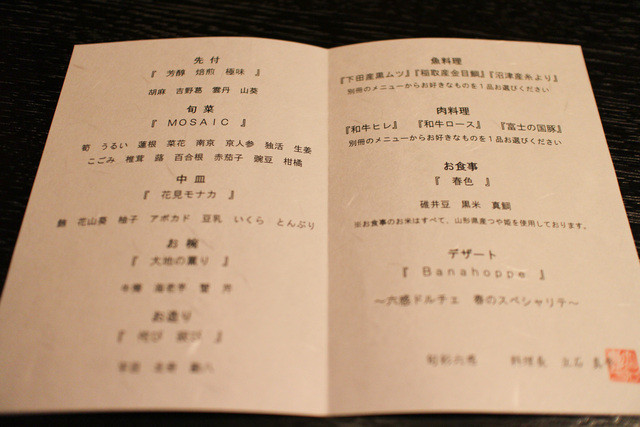 先付
『 芳醇 焙煎 極味 』
胡麻 吉野葛 雲丹 山葵
旬菜
『 MOSAIC 』
筍 うるい 蓮根 菜花 南京 京人参 独活 生姜
こごみ 椎茸 蕗 百合根 赤茄子 豌豆 柑橘
中皿
『 花見モナカ 』
花山葵 柚子 アボカド 豆乳 いくら とんぶり
お椀
『 大地の薫り 』
お造り
魚料理
『下田産黒ムツ』『稲取産金目鯛』『沼津産糸より』
別冊のメニューからお好きなものを1品お選びください
肉料理
『和牛ヒレ』 『和牛ロース』 『富士の国豚』
別冊のメニューからお好きなものを1品お選びください
お食事
『 春色 』
碓井豆 黒米 真鯛
※お食事のお米はすべて、山形県産つや姫を使用しております。
デザート
『 Banahoppe 』
～六感ドルチェ 春のスペシャリテ～
料理長